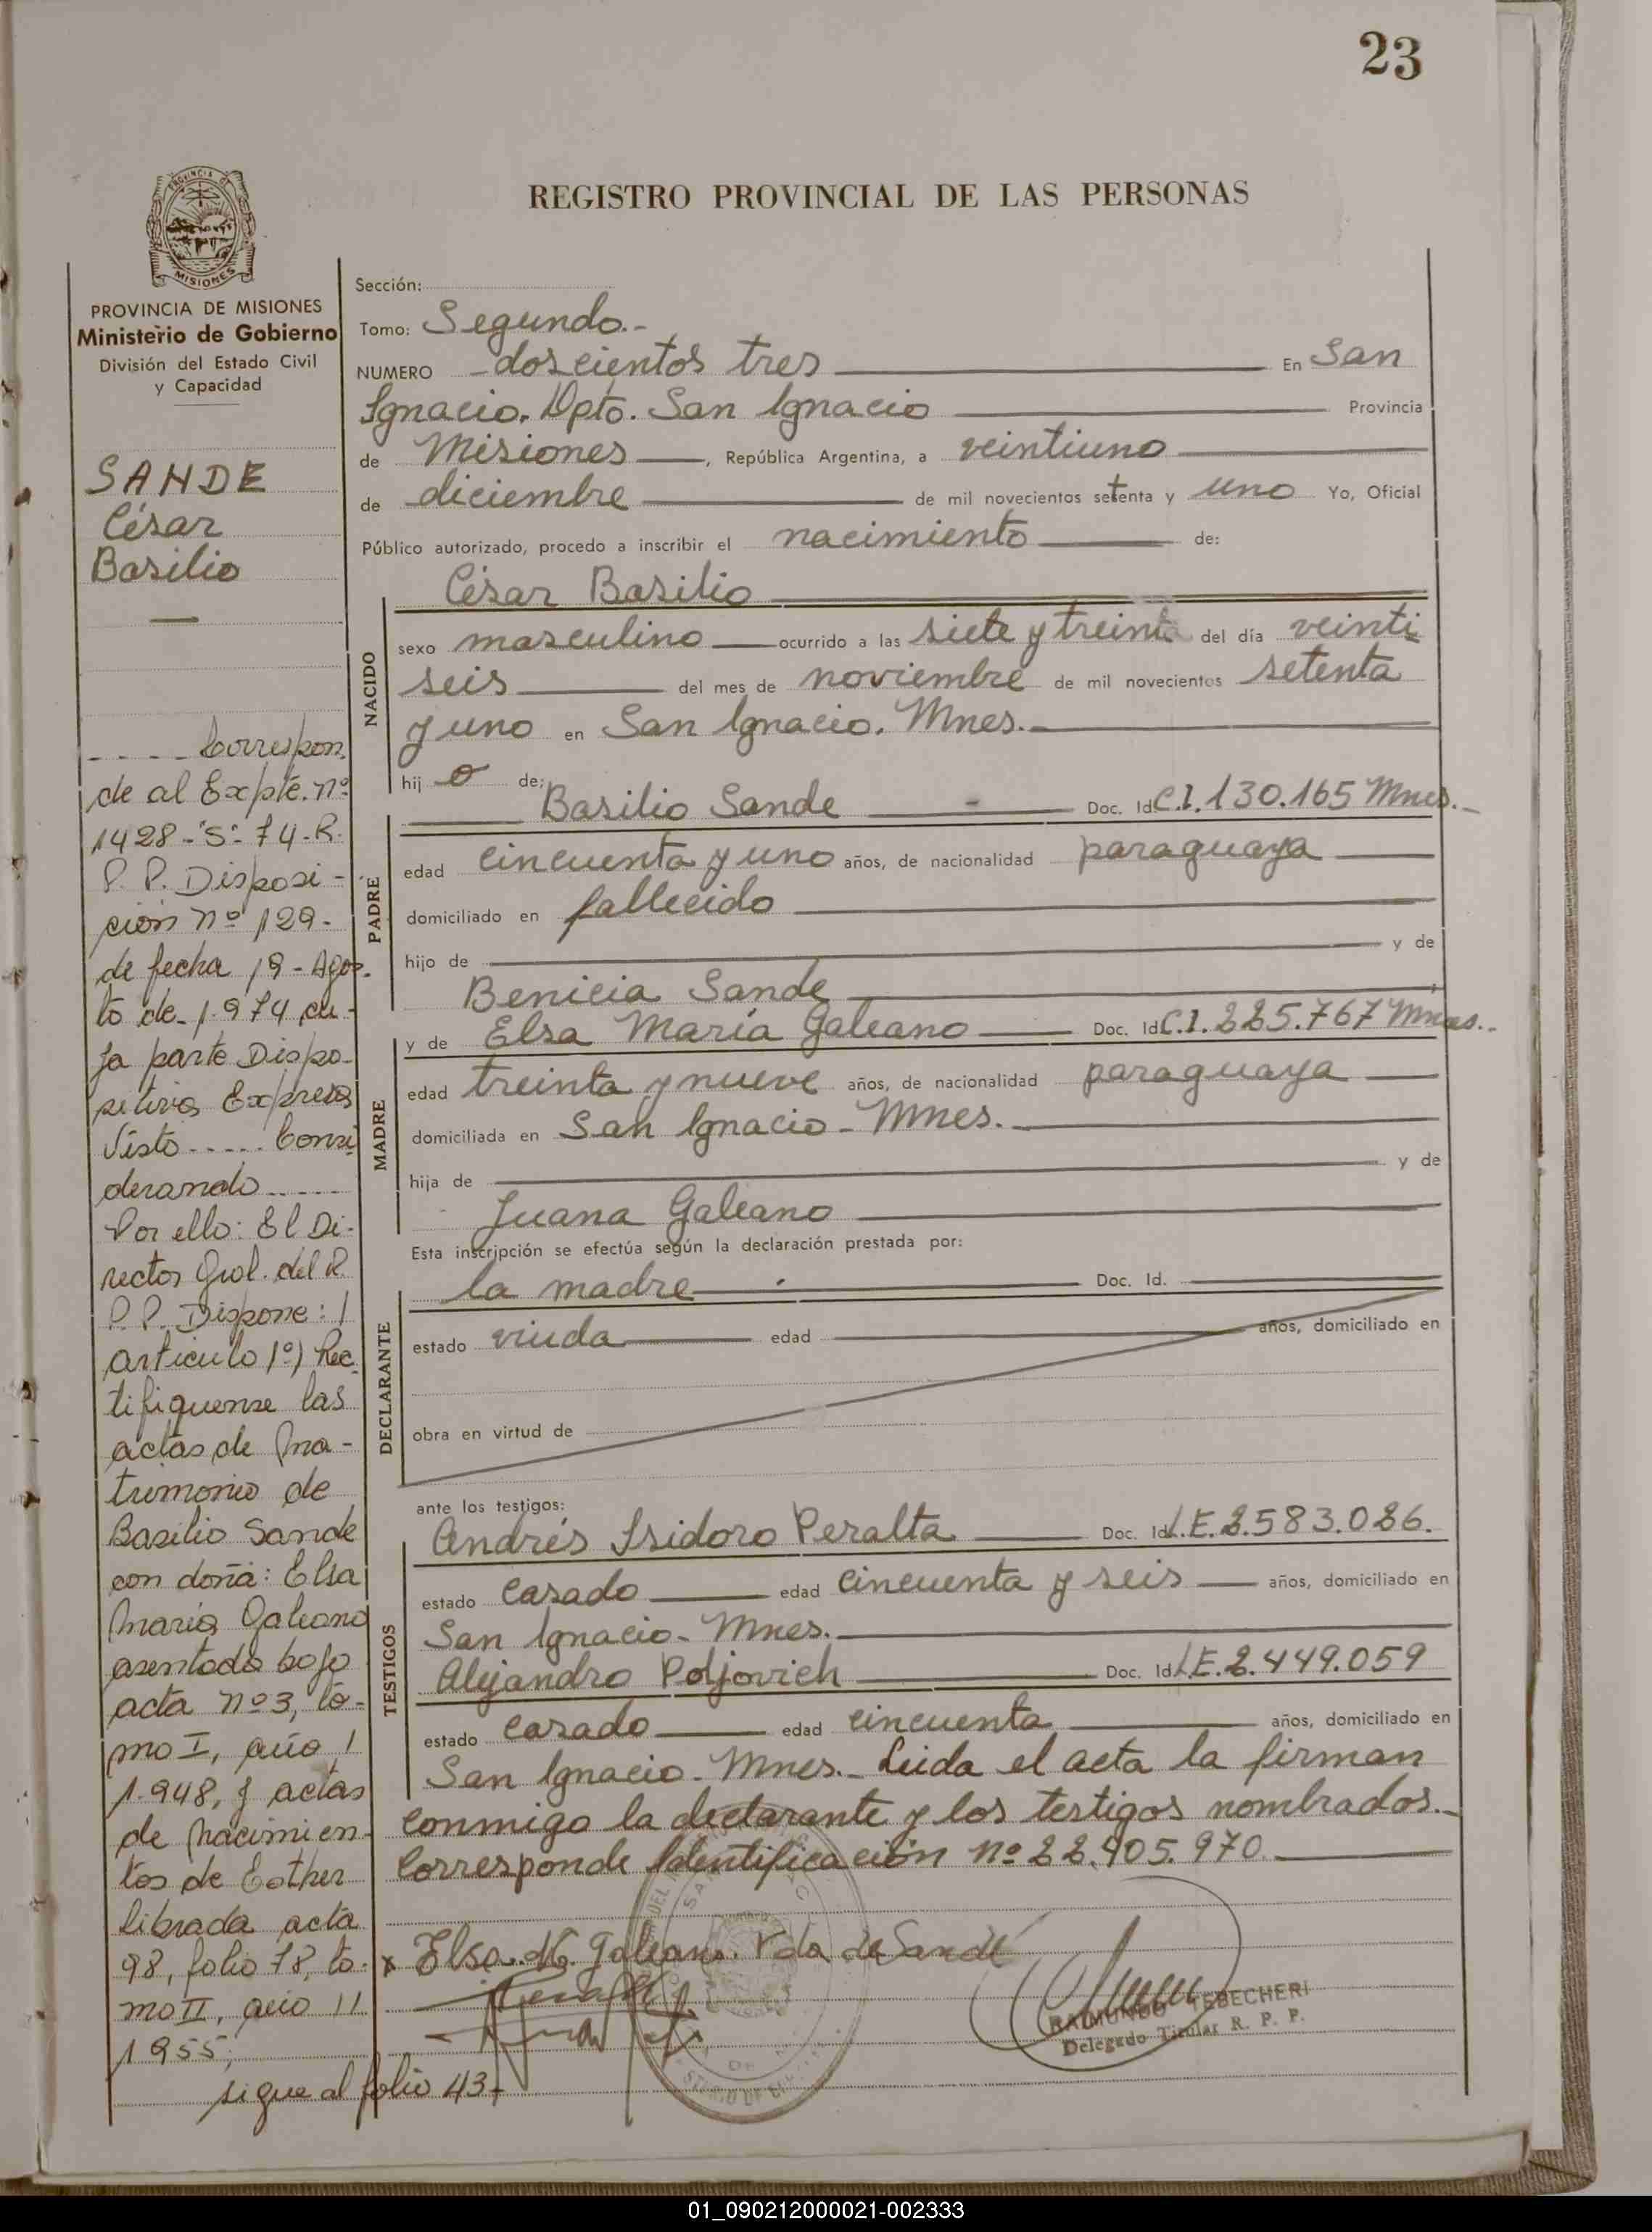 23
REGISTRO PROVINCIAL DE LAS PERSONAS
PROVINCIA DE
MISIONES
PROVINCIA DE MISIONES
Ministerio de Gobierno
División del Estado Civil
y Capacidad
SANDE
César
Basilio
..... Correspon.
de al Expte. nº
1428-"S"-74-R.
P. P. Disposi-
ción nº 129.
de fecha 19-Agos.
to de 1.974, cu-
ya parte Dispo-
sitiva Expresa
Visto ..... Consi
derando .....
Por ello: El Di-
rector Gral. del R.
P. P. Dispone: /
articulo 1º) Rec
tifiquense las
actas de ma-
trimonio de
Basilio Sande
con doña: Elsa
María Galeano
asentada bajo
acta nº 3, to-
mo I, año /
1.948, y actas
de nacimien-
tos de Esther
Librada acta
98, folio 78, to-
mo II, año //
1955;
sigue al folio 43-
Sección:
Tomo: Segundo.-
NUMERO -doscientos tres En San
Ignacio. Dpto. San Ignacio Provincia
de Misiones, República Argentina, a veintiuno
de diciembre de mil novecientos setenta y uno Yo, Oficial
Público autorizado, procedo a inscribir el nacimiento de:
César Basilio
NACIDO
sexo masculino ocurrido a las siete y treinta del día veinti
seis del mes de noviembre de mil novecientos setenta
y uno en San Ignacio. Mnes.-
hij o de:
PADRE
Basilio Sande - Doc. Id. C.I. 130.165 Mnes.-
edad cincuenta y uno años, de nacionalidad paraguaya
domiciliado en fallecido
hijo de y de
Benicia Sande
MADRE
y de Elsa María Galeano Doc. Id. C.I. 225.767 Mnes.-
edad treinta y nueve años, de nacionalidad paraguaya
domiciliada en San Ignacio - Mnes.
hija de y de
Juana Galeano
Esta inscripción se efectúa según la declaración prestada por:
DECLARANTE
la madre Doc. Id.
estado viuda edad años, domiciliado en
obra en virtud de
ante los testigos:
TESTIGOS
Andrés Isidoro Peralta Doc. Id. L.E. 2.583.026.
estado casado edad cincuenta y seis años, domiciliado en
San Ignacio - Mnes.
Alejandro Poljovich Doc. Id. L.E. 2.449.059
estado casado edad cincuenta años, domiciliado en
San Ignacio - Mnes.- Leida el acta la firman
conmigo la declarante y los testigos nombrados.-
Corresponde Identificación nº 22.905.970.
x Elsa M. Galeano Vda de Sande
RAIMUNDO TEBECHERI
Delegado Titular R. P. P.
01_090212000021-002333